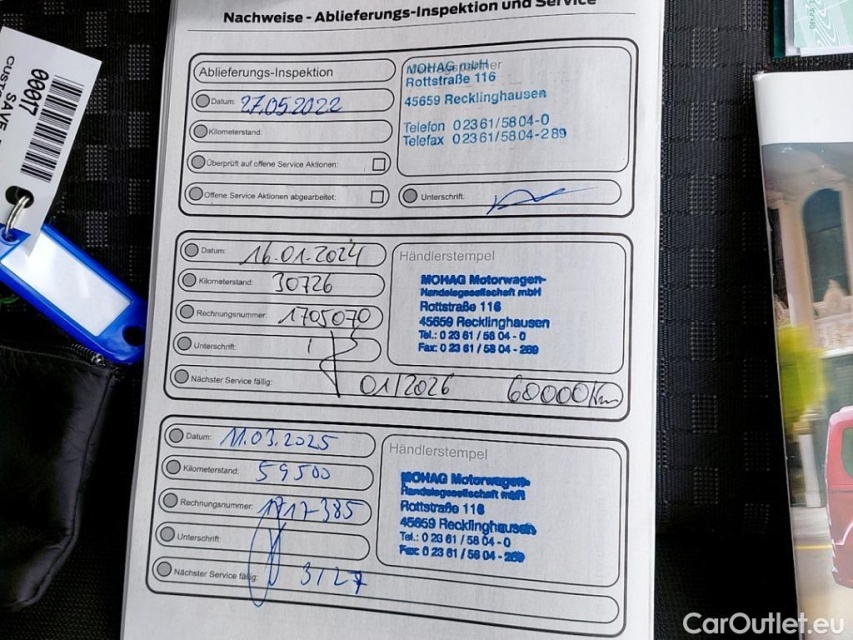 Nachweise - Ablieferungs-Inspektion und Service
Ablieferungs-Inspektion
Datum: 27.05.2022
Kilometerstand:
Überprüft auf offene Service Aktionen:
Offene Service Aktionen abgearbeitet:
MOHAG mbH
Rottstraße 116
45659 Recklinghausen
Telefon 0 23 61/58 04-0
Telefax 0 23 61/58 04-2 89
Unterschrift:
Datum: 16.01.2024
Kilometerstand: 30726
Rechnungsnummer: 1705070
Unterschrift:
Nächster Service fällig: 01/2026 60000Km
Händlerstempel
MOHAG Motorwagen-
Handelsgesellschaft mbH
Rottstraße 116
45659 Recklinghausen
Tel.: 0 23 61 / 58 04 - 0
Fax: 0 23 61 / 58 04 - 289
Datum: 11.03.2025
Kilometerstand: 59500
Rechnungsnummer: 1717385
Unterschrift:
Nächster Service fällig: 3/27
Händlerstempel
MOHAG Motorwagen-
Handelsgesellschaft mbH
Rottstraße 116
45659 Recklinghausen
Tel.: 0 23 61 / 58 04 - 0
Fax: 0 23 61 / 58 04 - 289
00017
SAVE
CarOutlet.eu